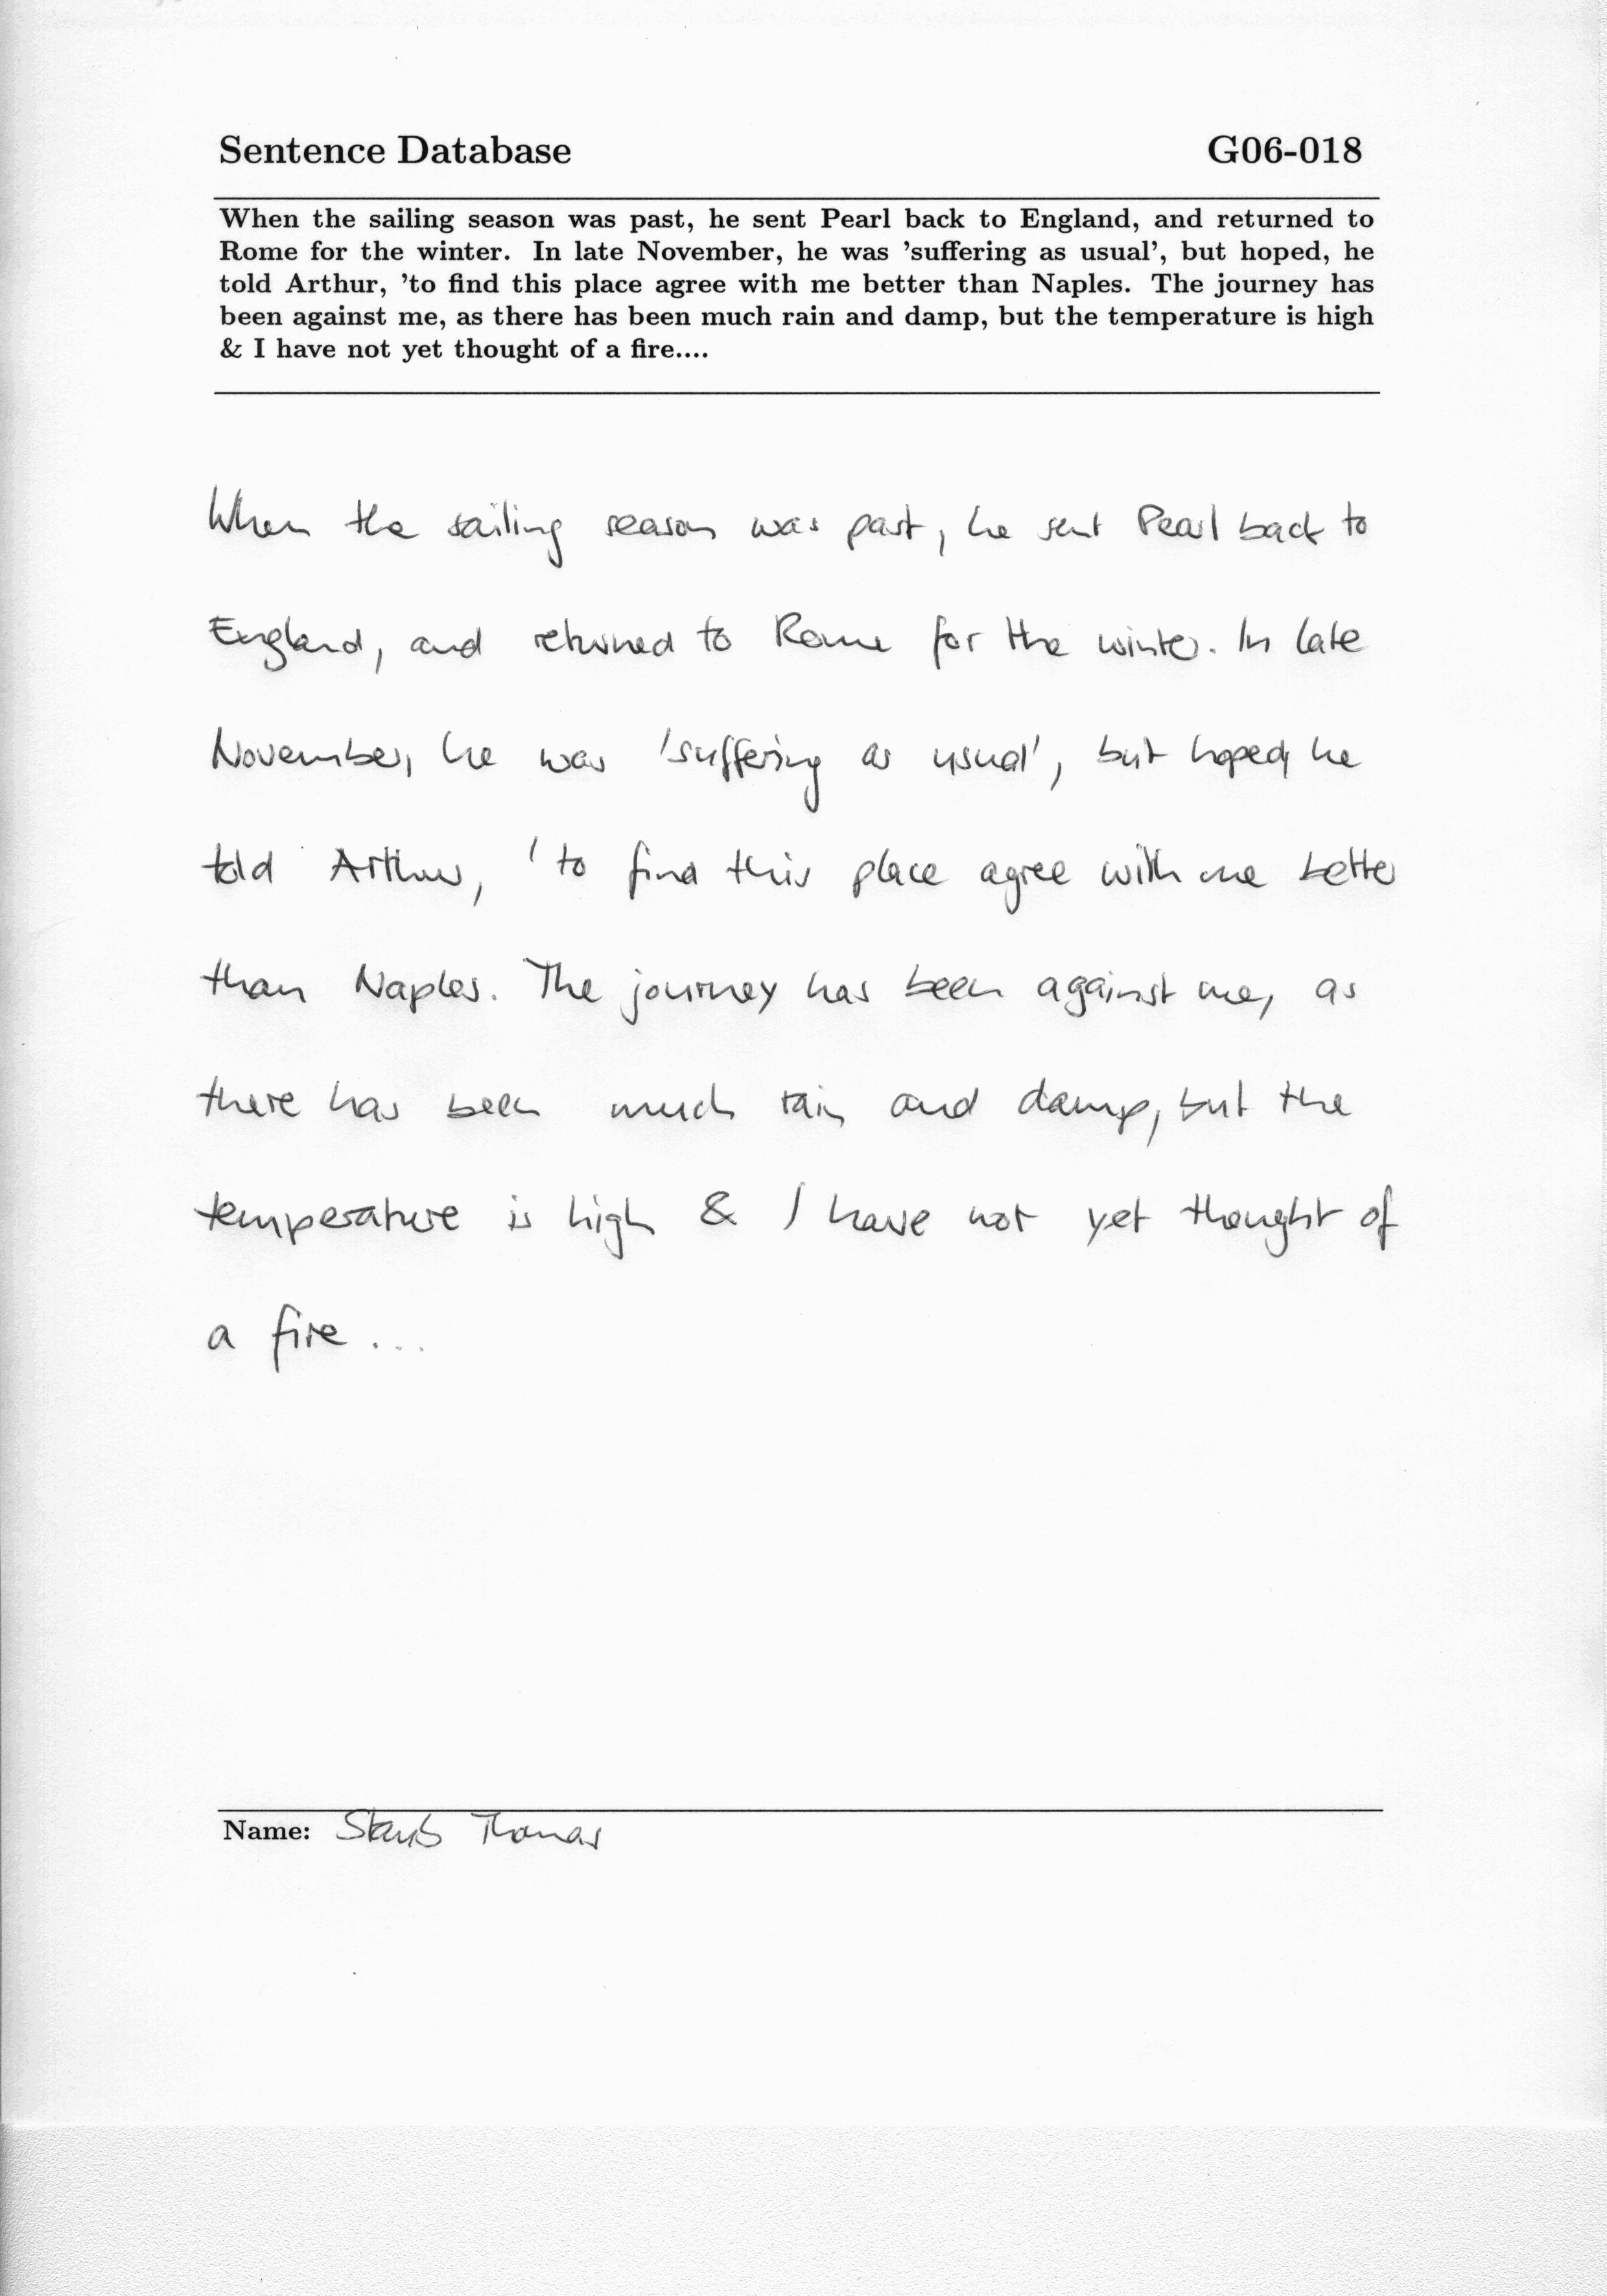 Sentence Database G06-018
When the sailing season was past, he sent Pearl back to England, and returned to
Rome for the winter. In late November, he was 'suffering as usual', but hoped, he
told Arthur, 'to find this place agree with me better than Naples. The journey has
been against me, as there has been much rain and damp, but the temperature is high
& I have not yet thought of a fire....
When the sailing season was past, he sent Pearl back to
England, and returned to Rome for the winter. In late
November, he was 'suffering as usual', but hoped, he
told Arthur, 'to find this place agree with me better
than Naples. The journey has been against me, as
there has been much rain and damp, but the
temperature is high & I have not yet thought of
a fire ...
Name: Staub Thomas